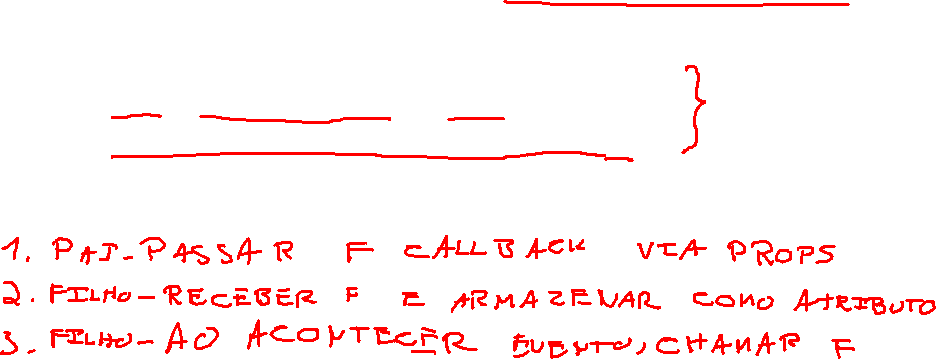 1. PAI-PASSAR F CALLBACK VIA PROPS
2. FILHO-RECEBER F E ARMAZENAR COMO ATRIBUTO
3. FILHO-AO ACONTECER EVENTO, CHAMAR F